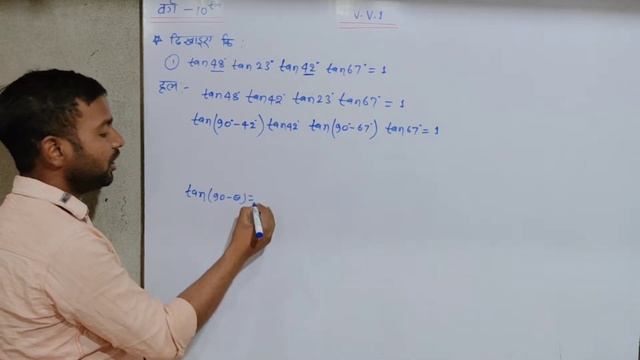 वर्ग - 10th
V.V.I
* दिखाइए कि :
① tan48° tan23° tan42° tan67° = 1
हल :-
tan48° tan42° tan23° tan67° = 1
tan(90°-42°) tan42° tan(90°-67°) tan67° = 1
tan(90-θ)=